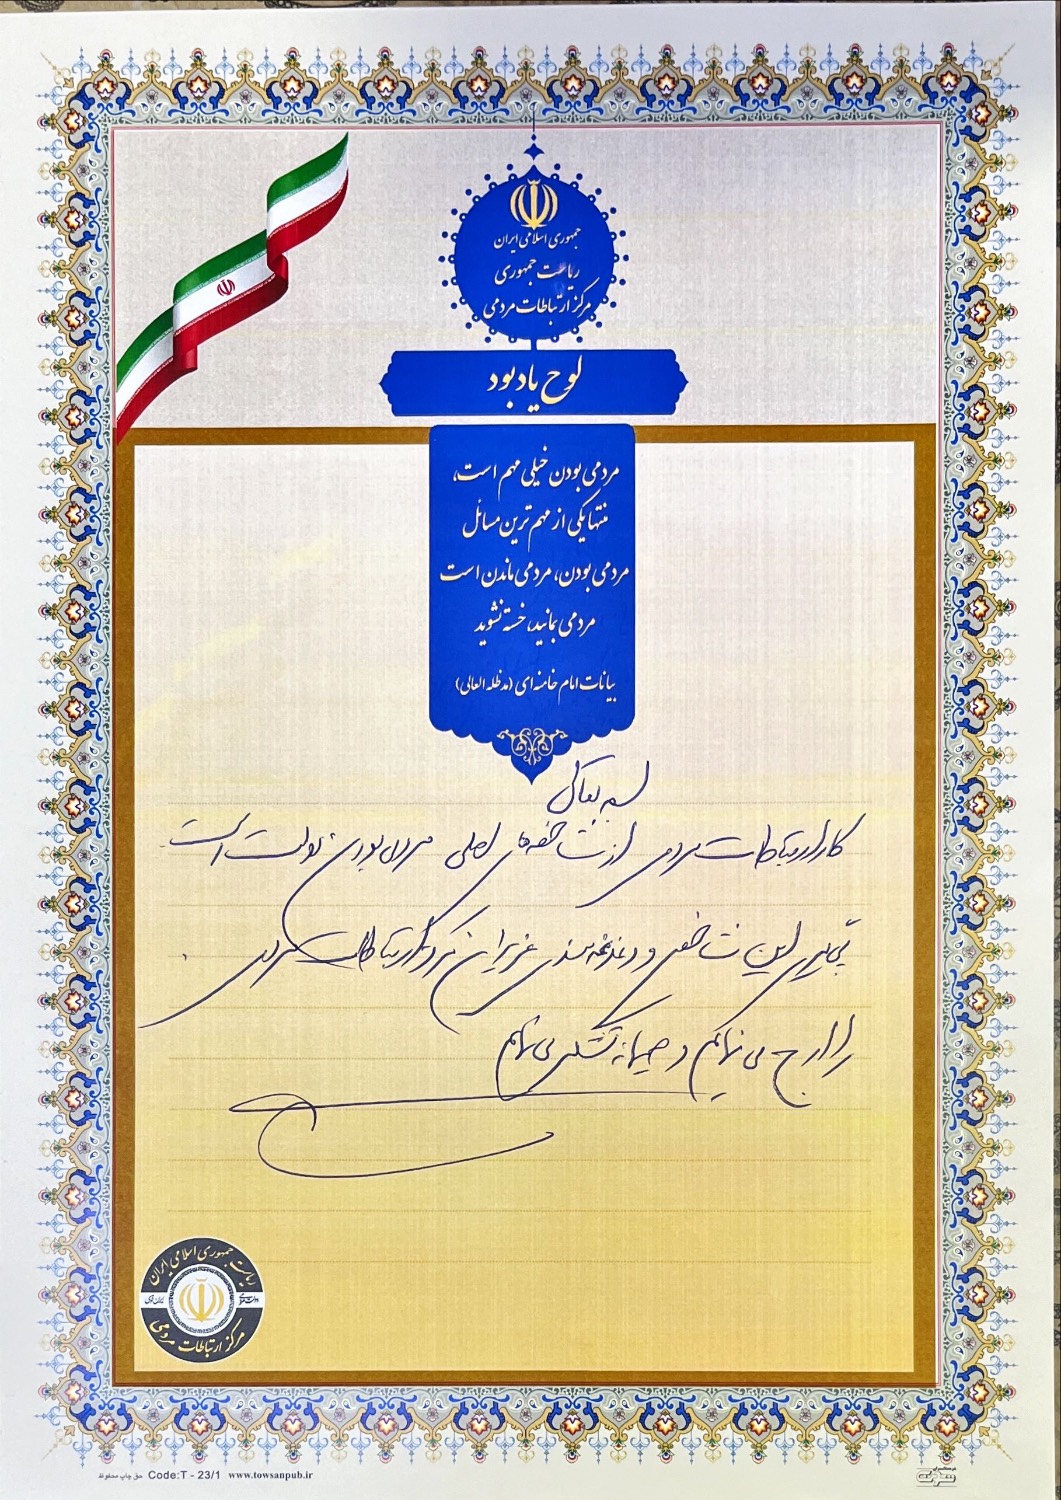 جمهوری اسلامی ایران
ریاست جمهوری
مرکز ارتباطات مردمی
لوح یادبود
مردمی بودن خیلی مهم است،
منتها یکی از مهم ترین مسائل
مردمی بودن، مردمی ماندن است
مردمی بمانید، خسته نشوید
بیانات امام خامنه ای (مدظله العالی)
بسمه تعالی
کار ارتباطات مردمی از شاخصه های اصلی مردمی بودن دولت است
این شاخص و دغدغه مندی عزیزان مرکز ارتباطات مردمی
را ارج می نهایم و صمیمانه تشکر می نمایم
ریاست جمهوری اسلامی ایران
مرکز ارتباطات مردمی
حق چاپ محفوظ Code:T - 23/1 www.towsanpub.ir